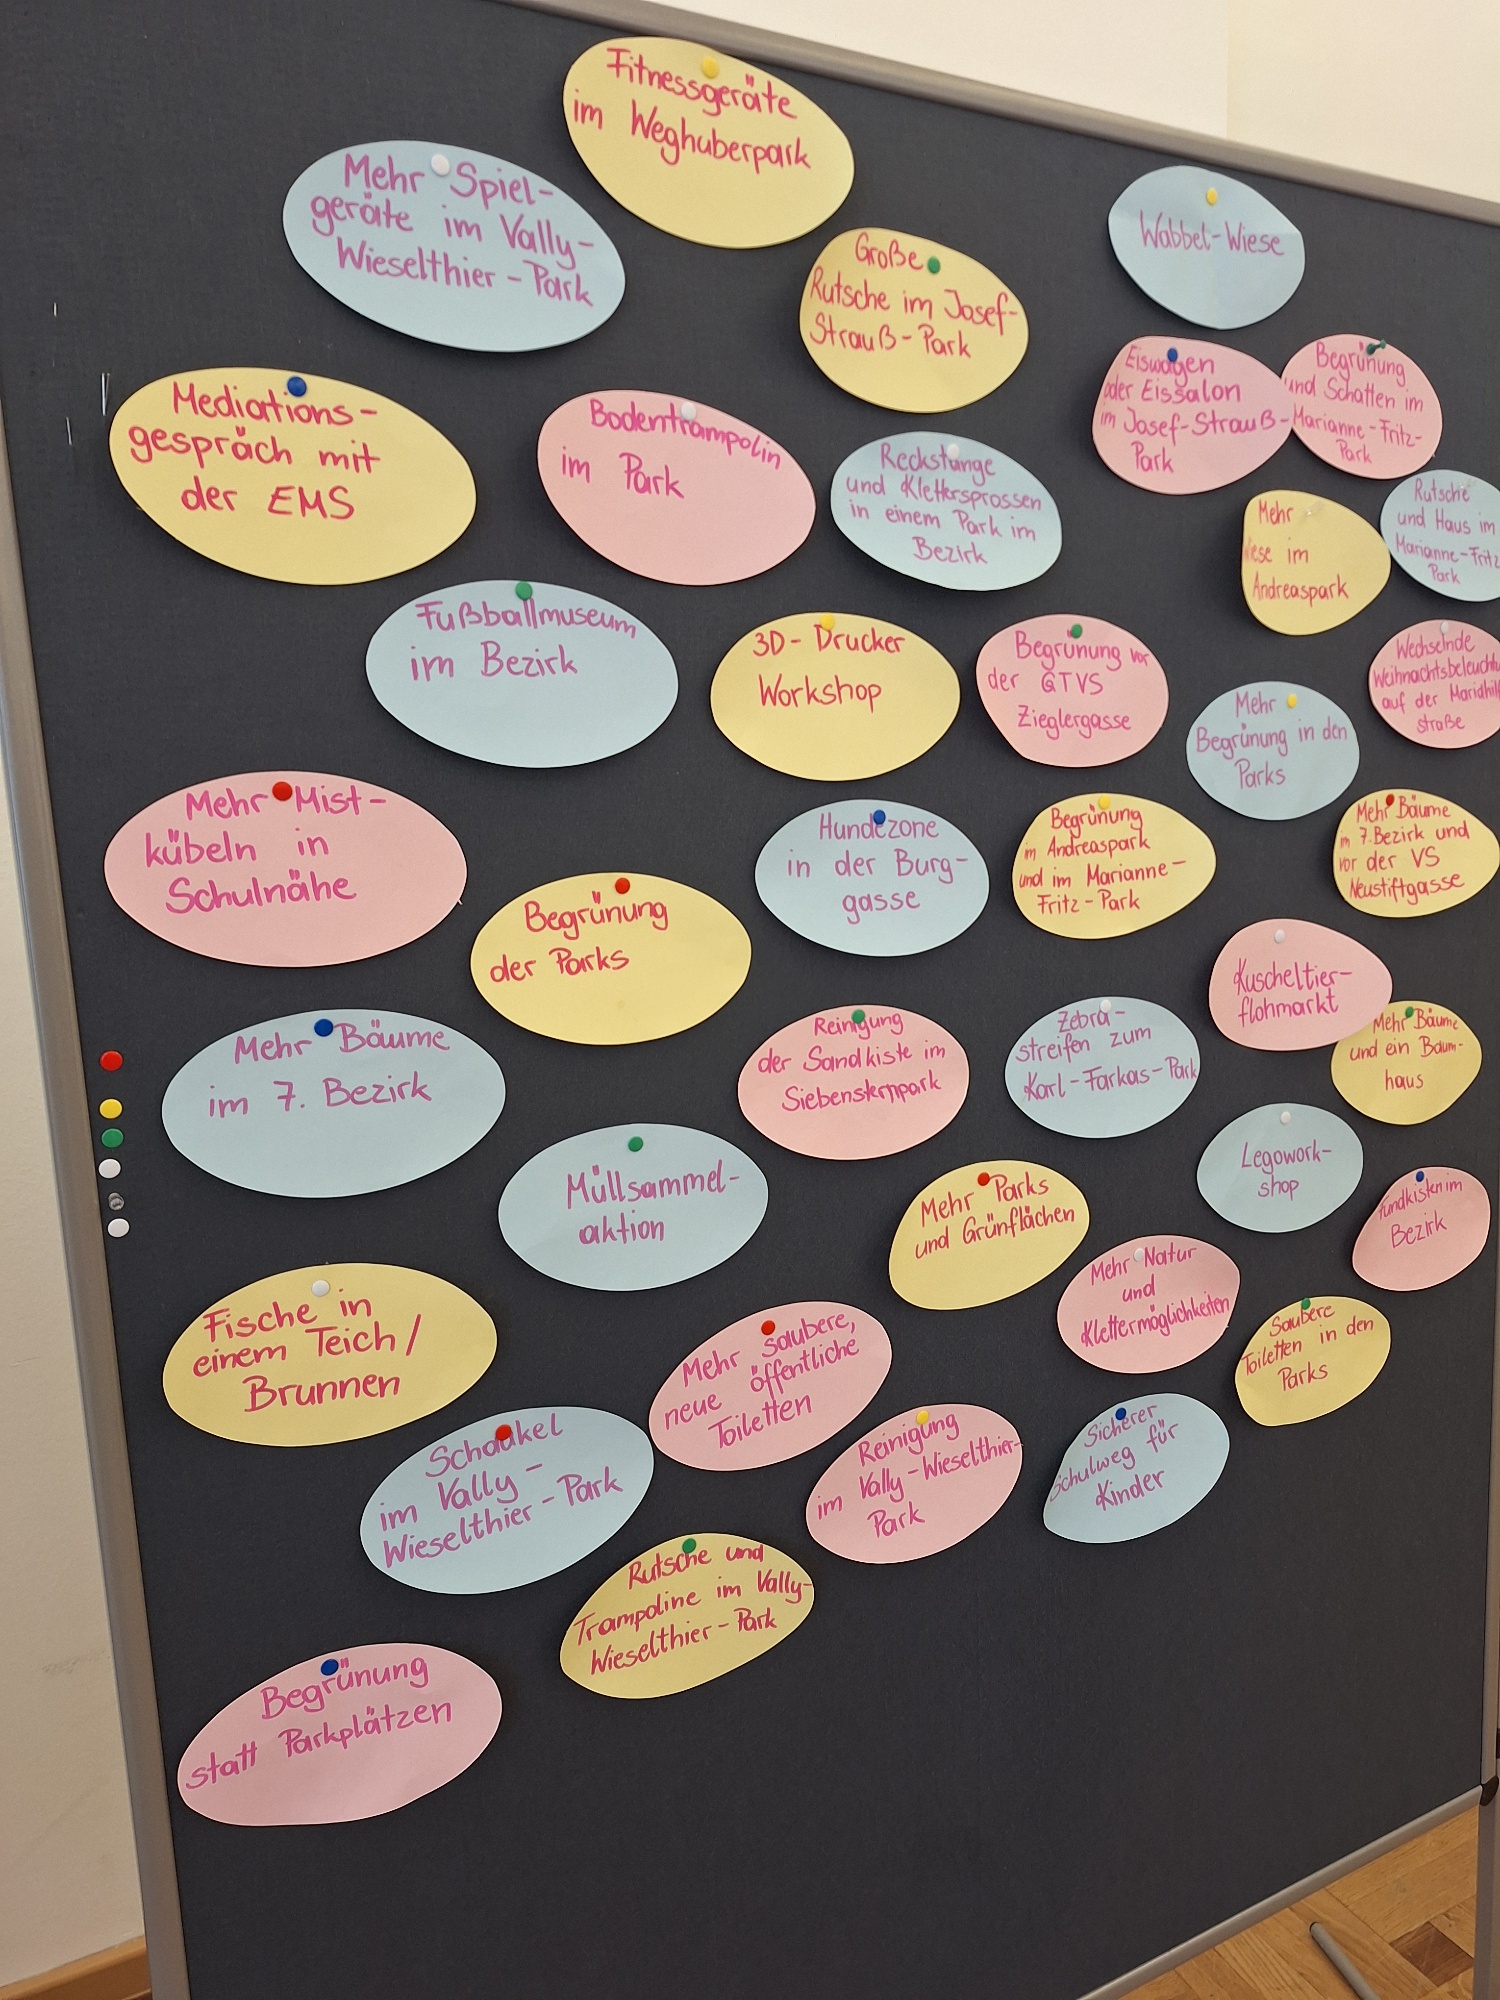 Fitnessgeräte
im Weghuberpark
Mehr Spiel-
geräte im Vally-
Wieselthier-Park
Große
Rutsche im Josef-
Strauß-Park
Wabbel-Wiese
Eiswagen
oder Eissalon
im Josef-Strauß-
Park
Begrünung
und Schatten im
Marianne-Fritz-
Park
Mediations-
gespräch mit
der EMS
Bodentrampolin
im Park
Reckstange
und Klettersprossen
in einem Park im
Bezirk
Mehr
iese im
Andreaspark
Rutsche
und Haus im
Marianne-Fritz
Park
Fußballmuseum
im Bezirk
3D-Drucker
Workshop
Begrünung vor
der GTVS
Zieglergasse
Mehr
Begrünung in den
Parks
Wechselnde
Weihnachtsbeleuchtu
auf der Mariahilf
straße
Mehr Mist-
kübeln in
Schulnähe
Begrünung
der Parks
Hundezone
in der Burg-
gasse
Begrünung
in Andreaspark
und im Marianne-
Fritz-Park
Mehr Bäume
im 7. Bezirk und
vor der VS
Neustiftgasse
Kuscheltier-
flohmarkt
Mehr Bäume
im 7. Bezirk
Reinigung
der Sandkiste im
Siebensternpark
Zebra-
streifen zum
Karl-Farkas-Park
Mehr Bäume
und ein Baum-
haus
Müllsammel-
aktion
Mehr Parks
und Grünflächen
Legowork-
shop
Fundkisten im
Bezirk
Fische in
einem Teich/
Brunnen
Mehr saubere,
neue öffentliche
Toiletten
Mehr Natur
und
Klettermöglichkeiten
Saubere
Toiletten in den
Parks
Schaukel
im Vally-
Wieselthier-Park
Reinigung
im Vally-Wieselthier-
Park
Sicherer
Schulweg für
Kinder
Rutsche und
Trampoline im Vally-
Wieselthier-Park
Begrünung
statt Parkplätzen